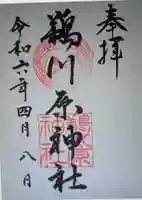 奉拝
鵜川原神社
令和六年四月八日